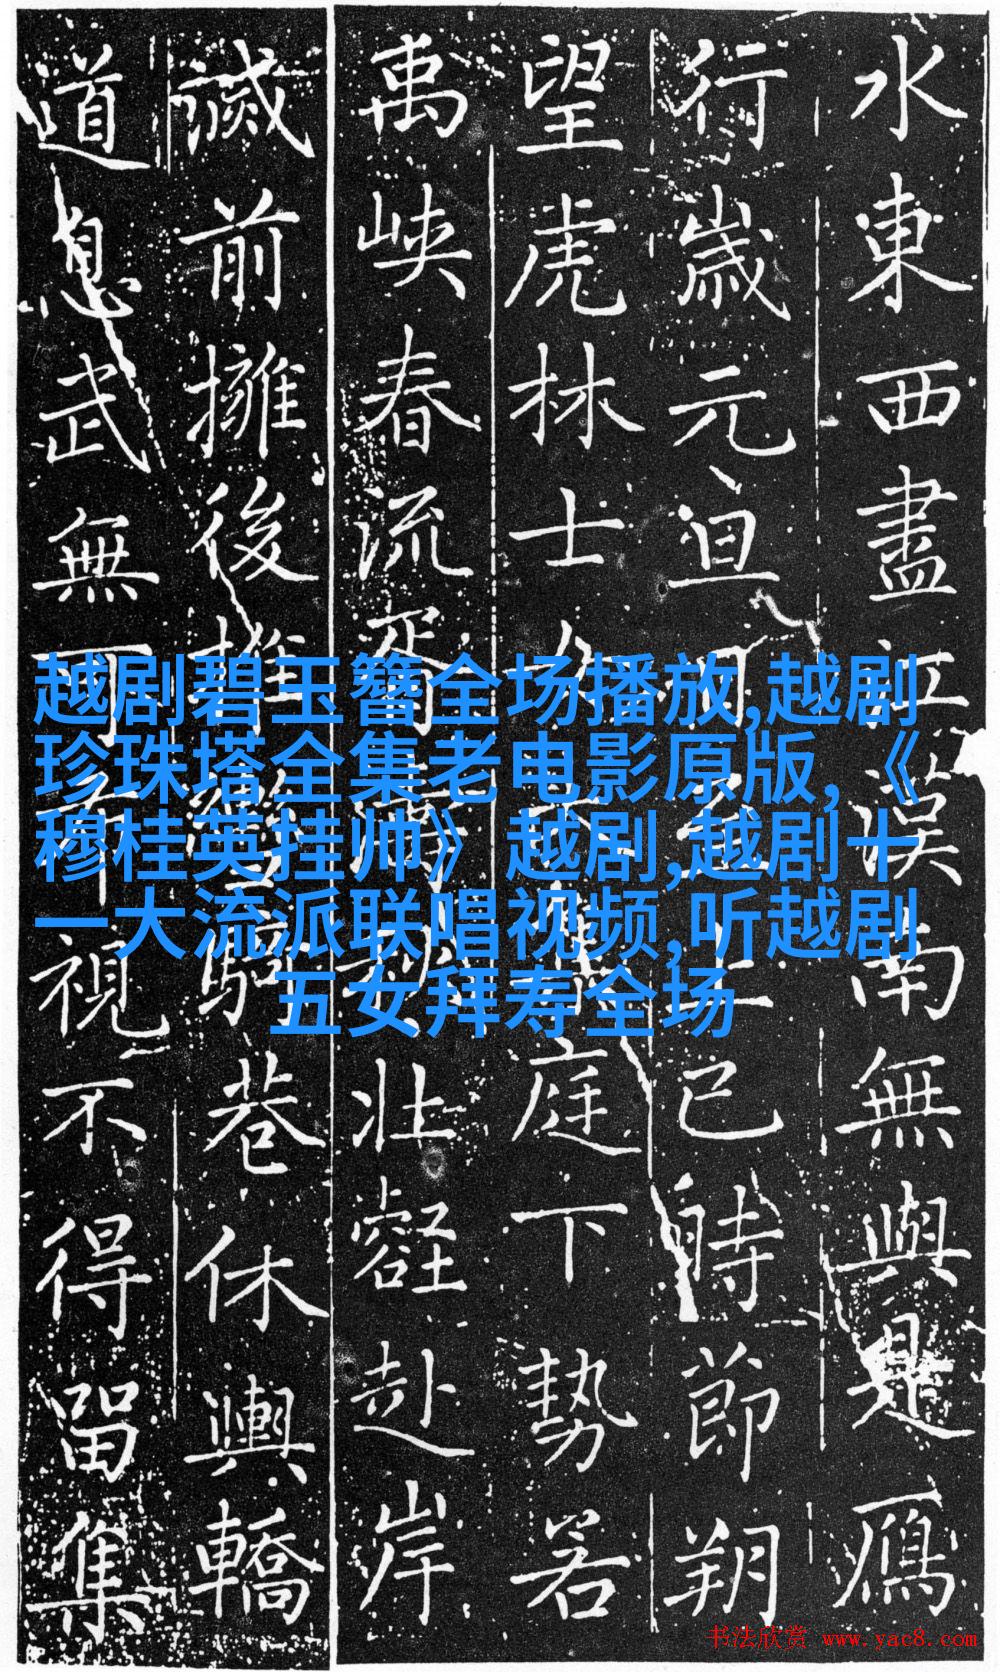 水東西盡江漢南無與是鴈
行歲元旦上已時節朔
望虎林士女庭下勢若
禹峽春流胥壯赴岸
前擁後巷休輿轎
道息武無視不得留集
越剧碧玉簪全场播放,越剧
珍珠塔全集老电影原版,《
穆桂英挂帅》越剧,越剧十
一大流派联唱视频,听越剧
五女拜寿全场
书法欣赏 www.yac8.com